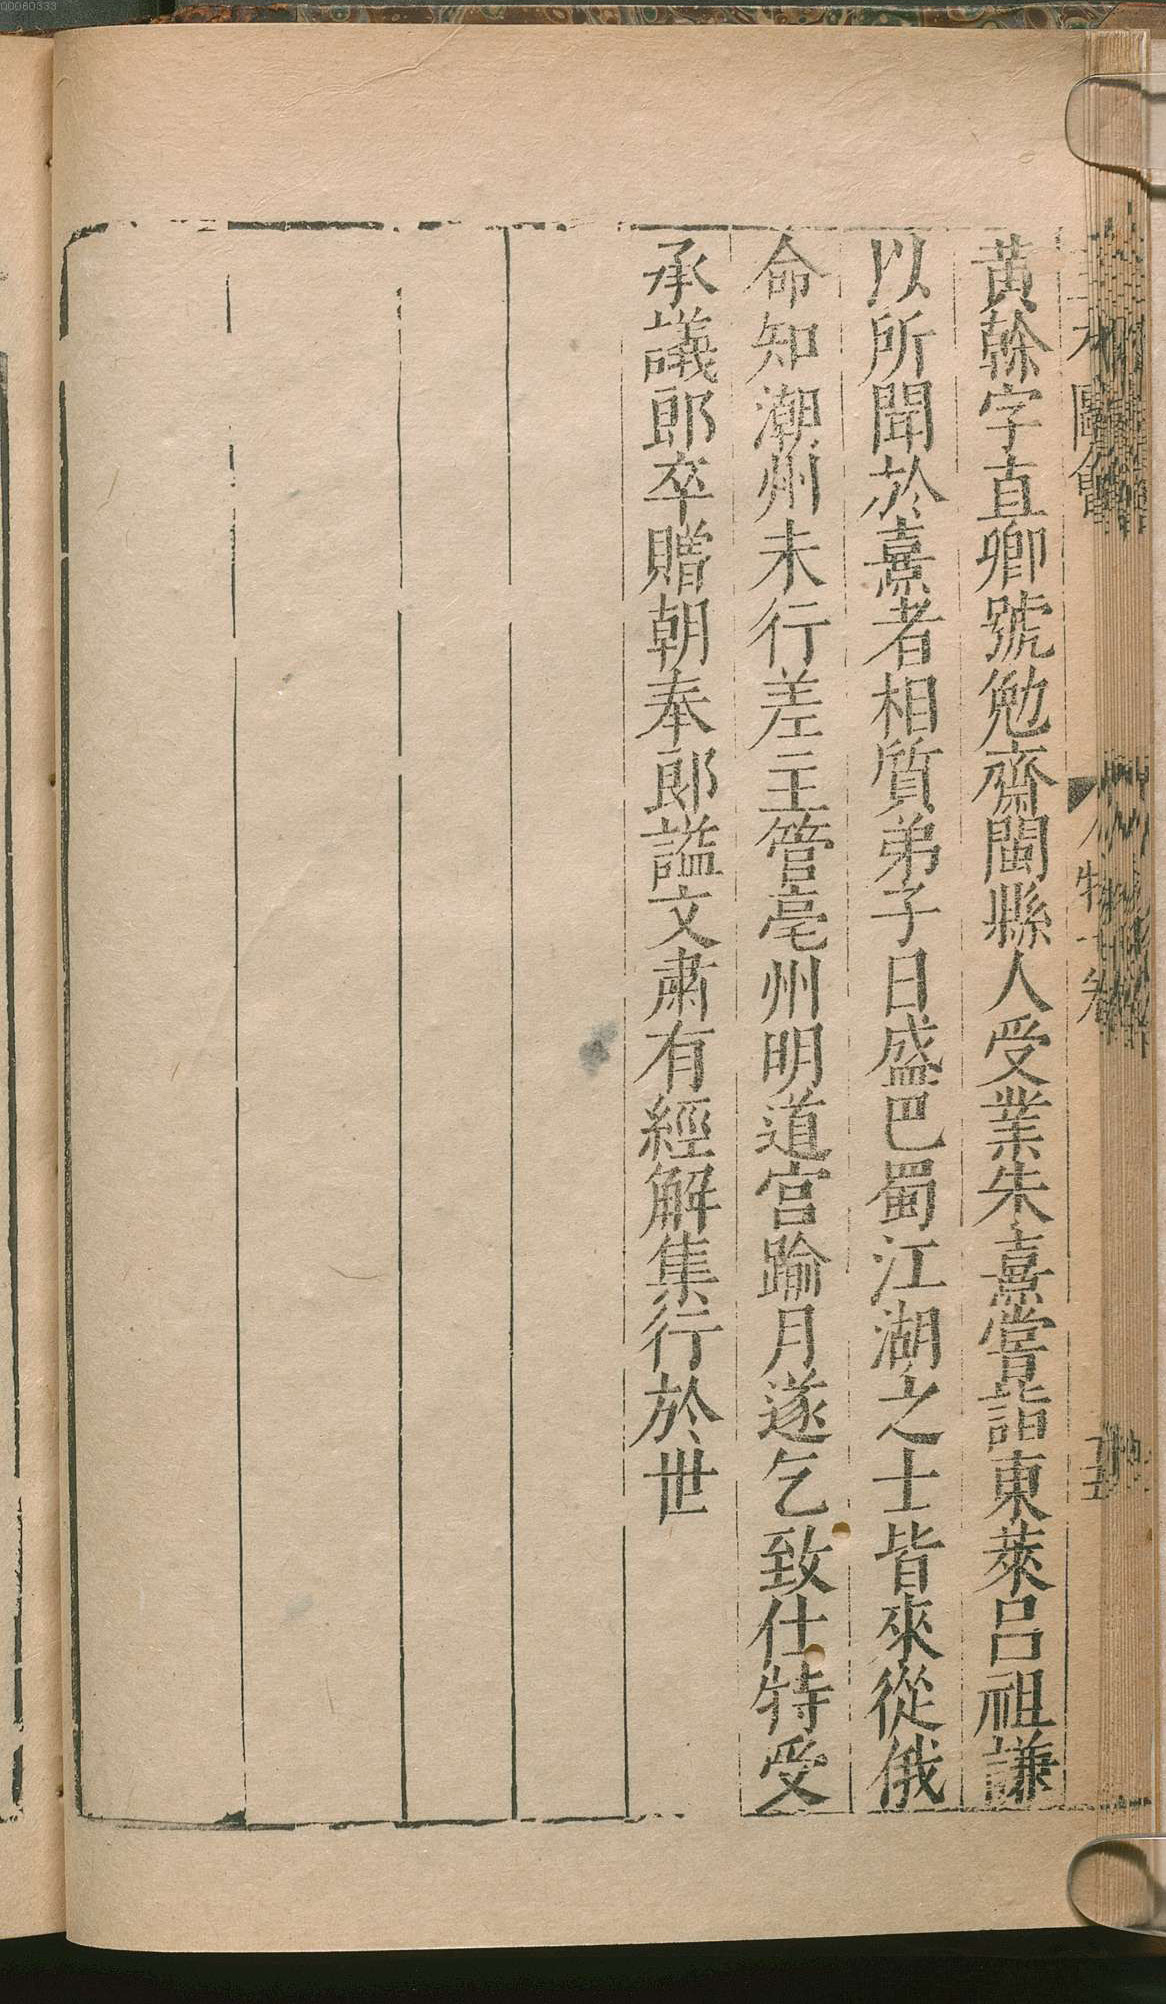 黃榦字直卿號勉齋閩縣人受業朱熹嘗詣東萊呂祖謙
以所聞於熹者相質弟子日盛巴蜀江湖之士皆來從俄
命知潮州未行差主管亳州明道宮踰月遂乞致仕特受
承議郎卒贈朝奉郎諡文肅有經解集行於世
00060333